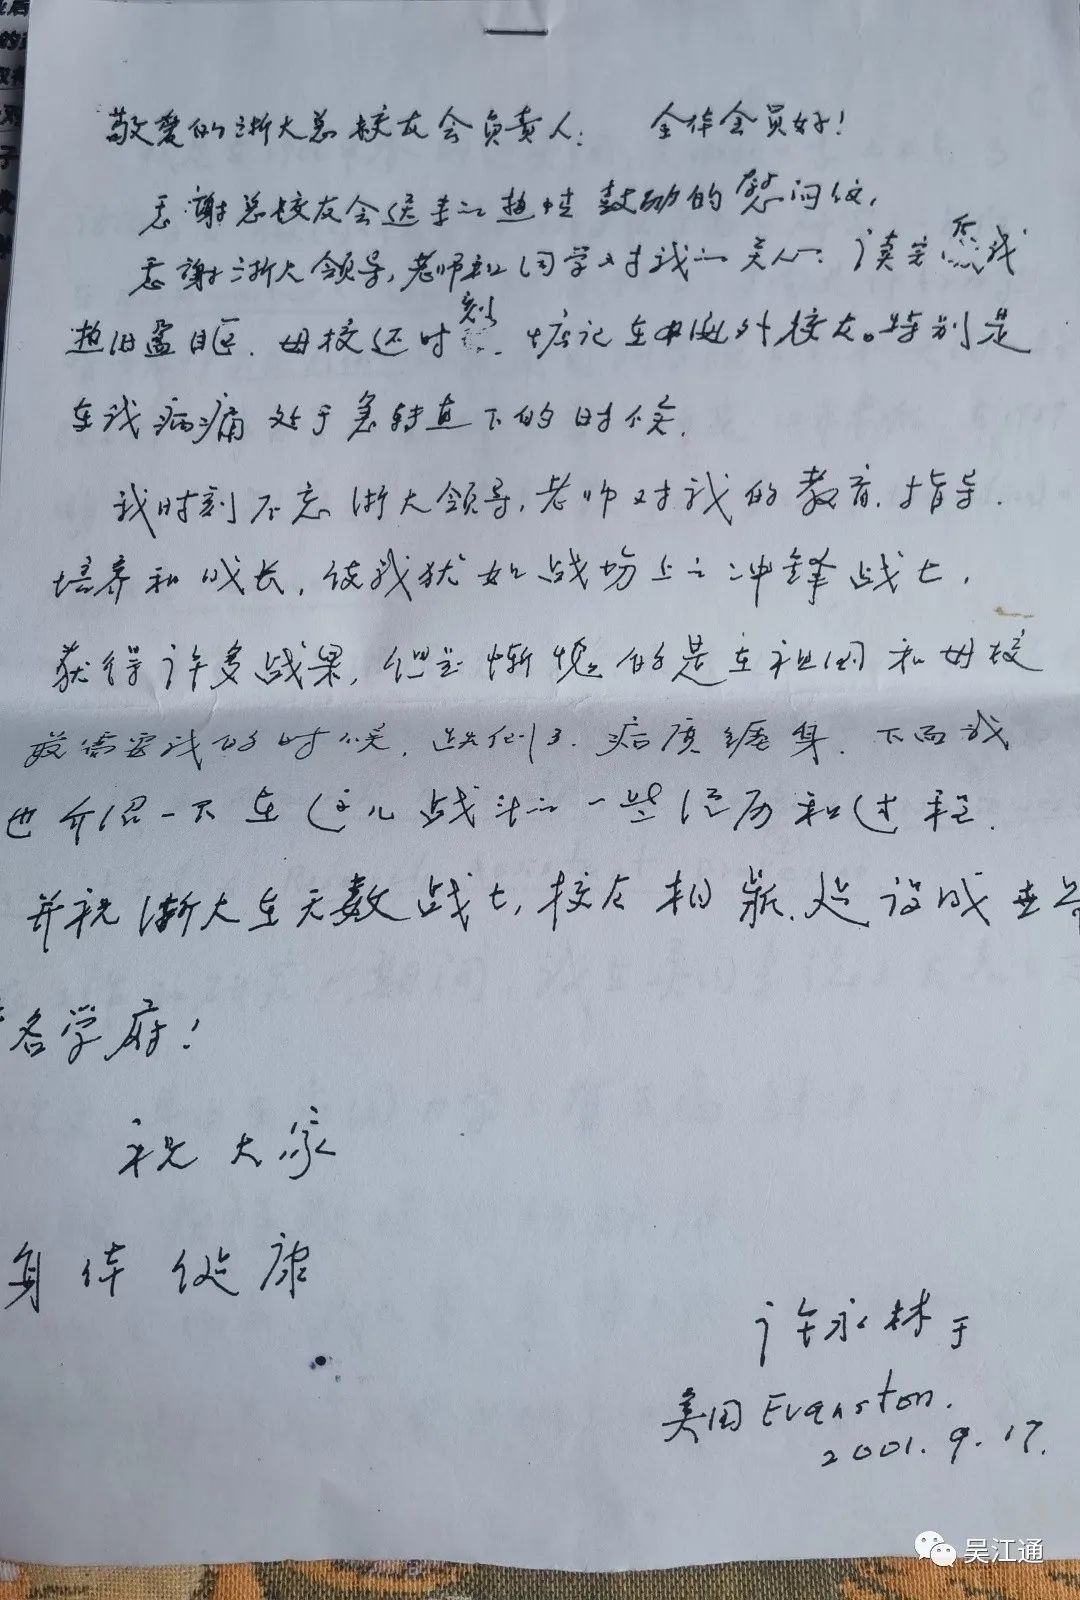 敬爱的浙大总校友会负责人： 全体会员好！
感谢总校友会送来的热情鼓励的慰问信，
感谢浙大领导，老师和同学对我的关心。读完 我
热泪盈眶．母校还时刻 惦记在海外校友。特别是
在我病痛处于急转直下的时候．
我时刻不忘浙大领导，老师对我的教育．指导．
培养和成长．使我犹如战场上之冲锋战士，
获得许多战果，但 惭愧的是在祖国和母校
最需要我的时候． 病魔缠身．下面我
也介绍一下在这儿战斗的一些经历和过程．
并祝浙大在无数战士，校友 ．建设成世界
名学府！
祝大家
身体健康
许永林于
美国Evanston.
2001.9.17.
吴江通